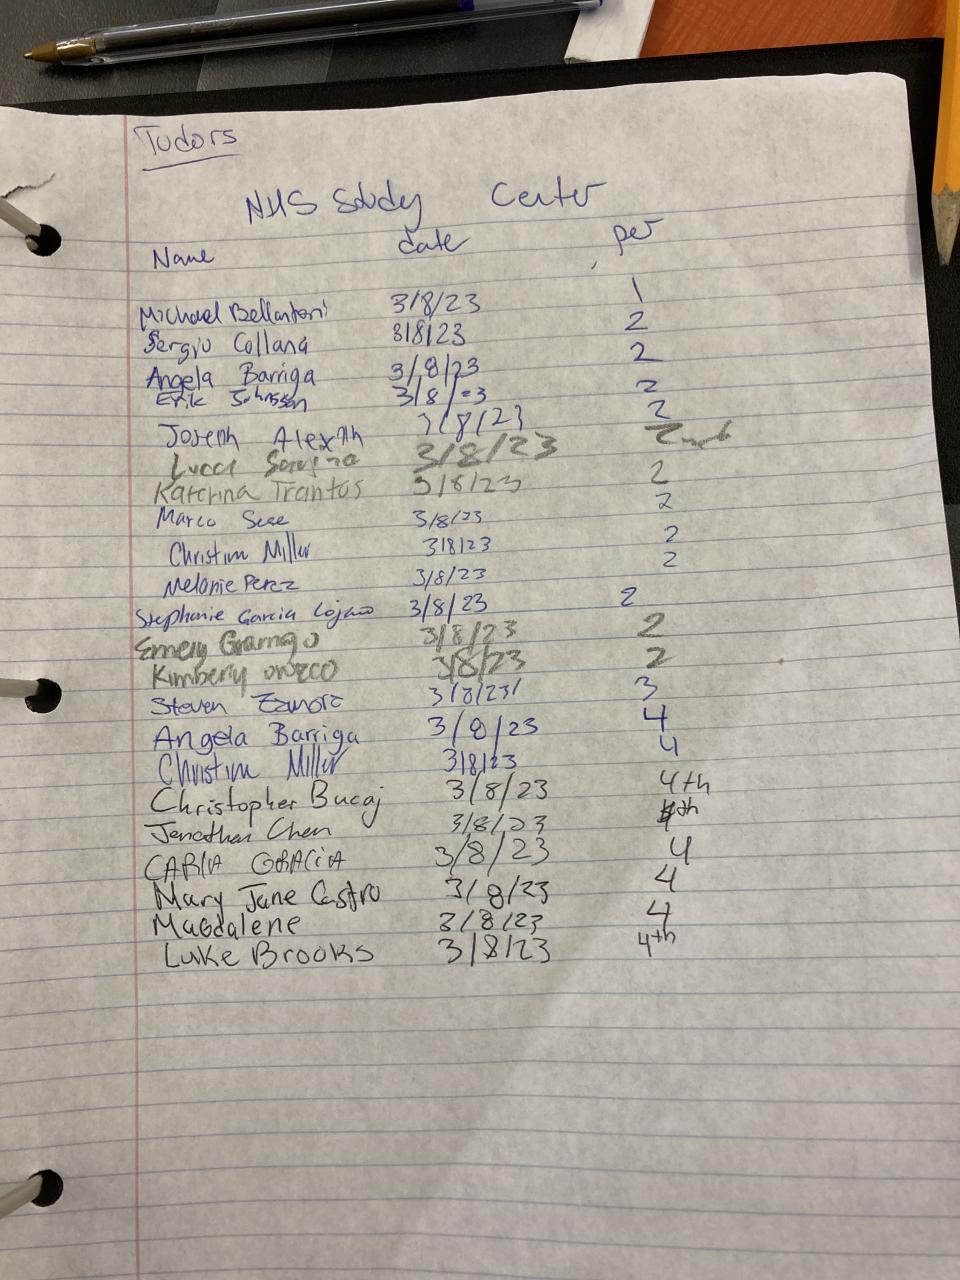 Tudors
NHS Study Center
Name date per
Michael Bellantoni 3/8/23 1
Sergio Collana 3/8/23 2
Angela Barriga 3/8/23 2
Erik Johnson 3/8/23 2
Joseph 3/8/23 2
Lucca 3/8/23 2nd
Katerina Trantos 3/8/23 2
Marco 3/8/23 2
Christina Miller 3/8/23 2
Melanie Perez 3/8/23 2
Stephanie Garcia Lojano 3/8/23 2
Emery 3/8/23 2
Kimbery orozco 3/8/23 2
Steven Zamora 3/8/23 3
Angela Barriga 3/8/23 4
Christina Miller 3/8/23 4
Christopher Bucaj 3/8/23 4th
Jonathan Chen 3/8/23 4th
3/8/23 4
Mary Jane Castro 3/8/23 4
Magdalene 3/8/23 4
Luke Brooks 3/8/23 4th